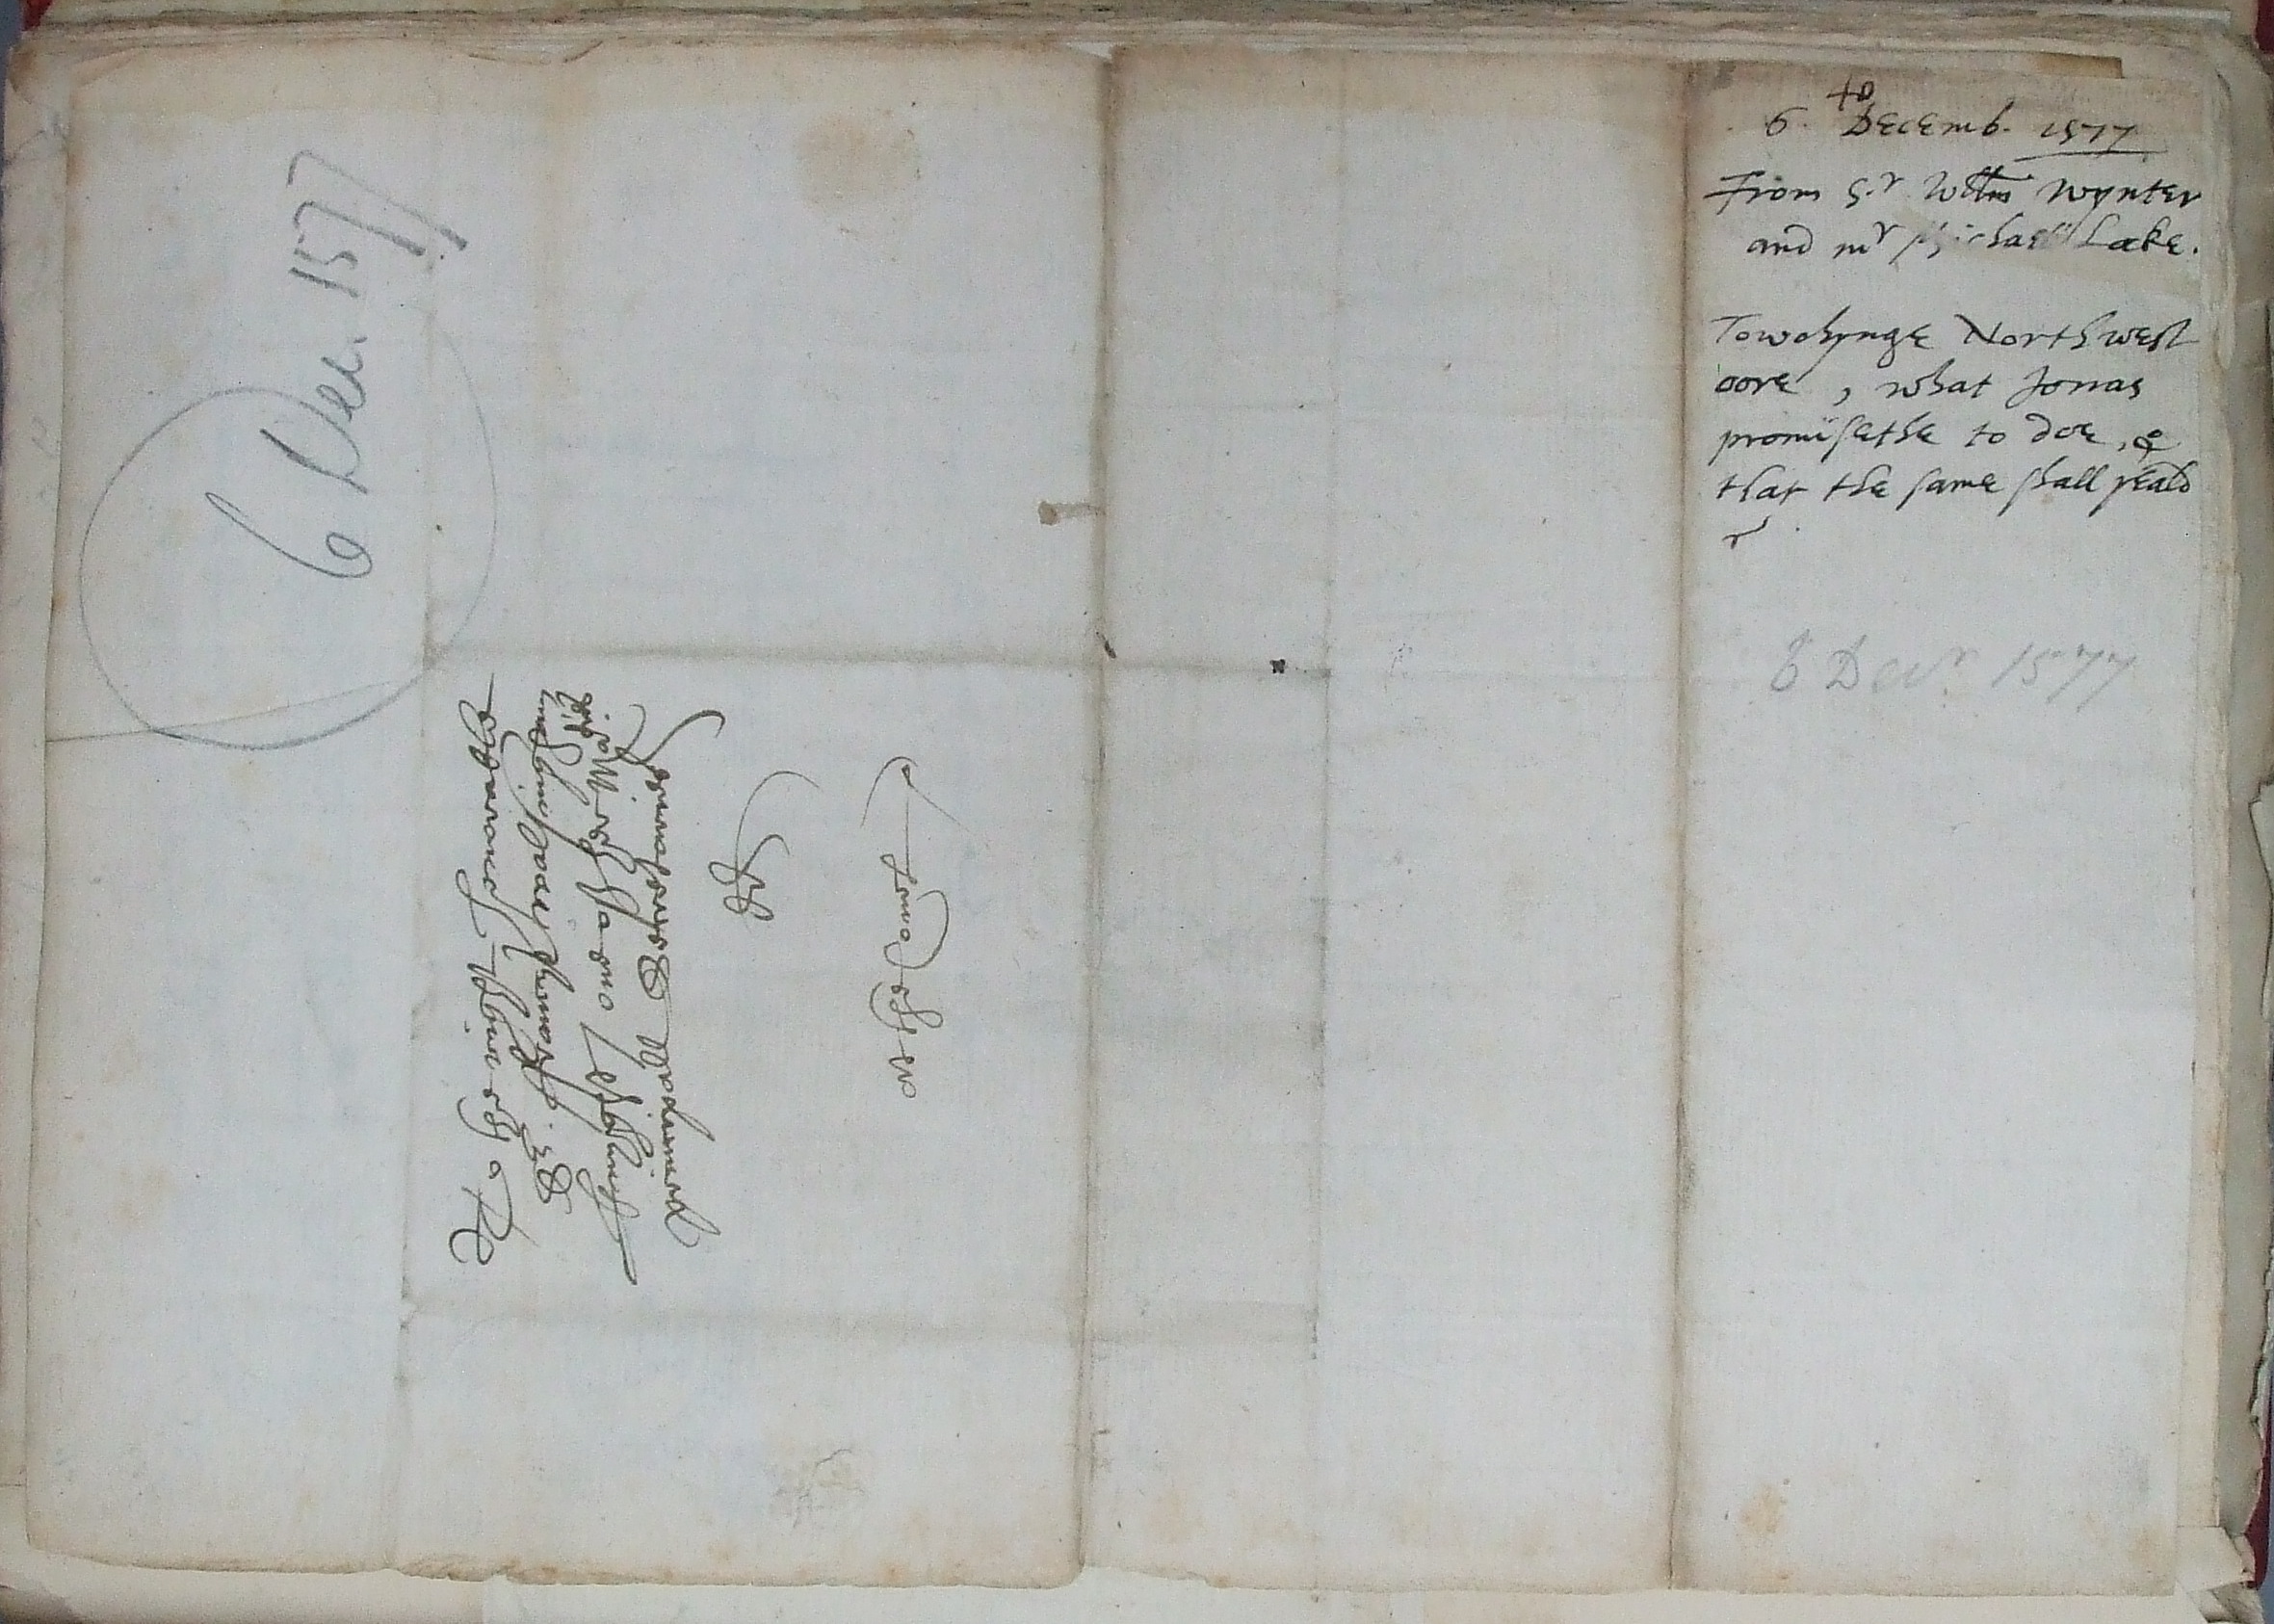 6 Dec. 1577
To the right honorable
Sr. ffrauncys walsingham
knight one of her Ma
principall Secretaries
at the Court
6.to Decemb. 1577
From S.r Willm Wynter
and mr Michaell Lake.
Towchynge Northwest
oore, what Jonas
promisethe to doe, &
that the same shall yeald
6 Decr 1577